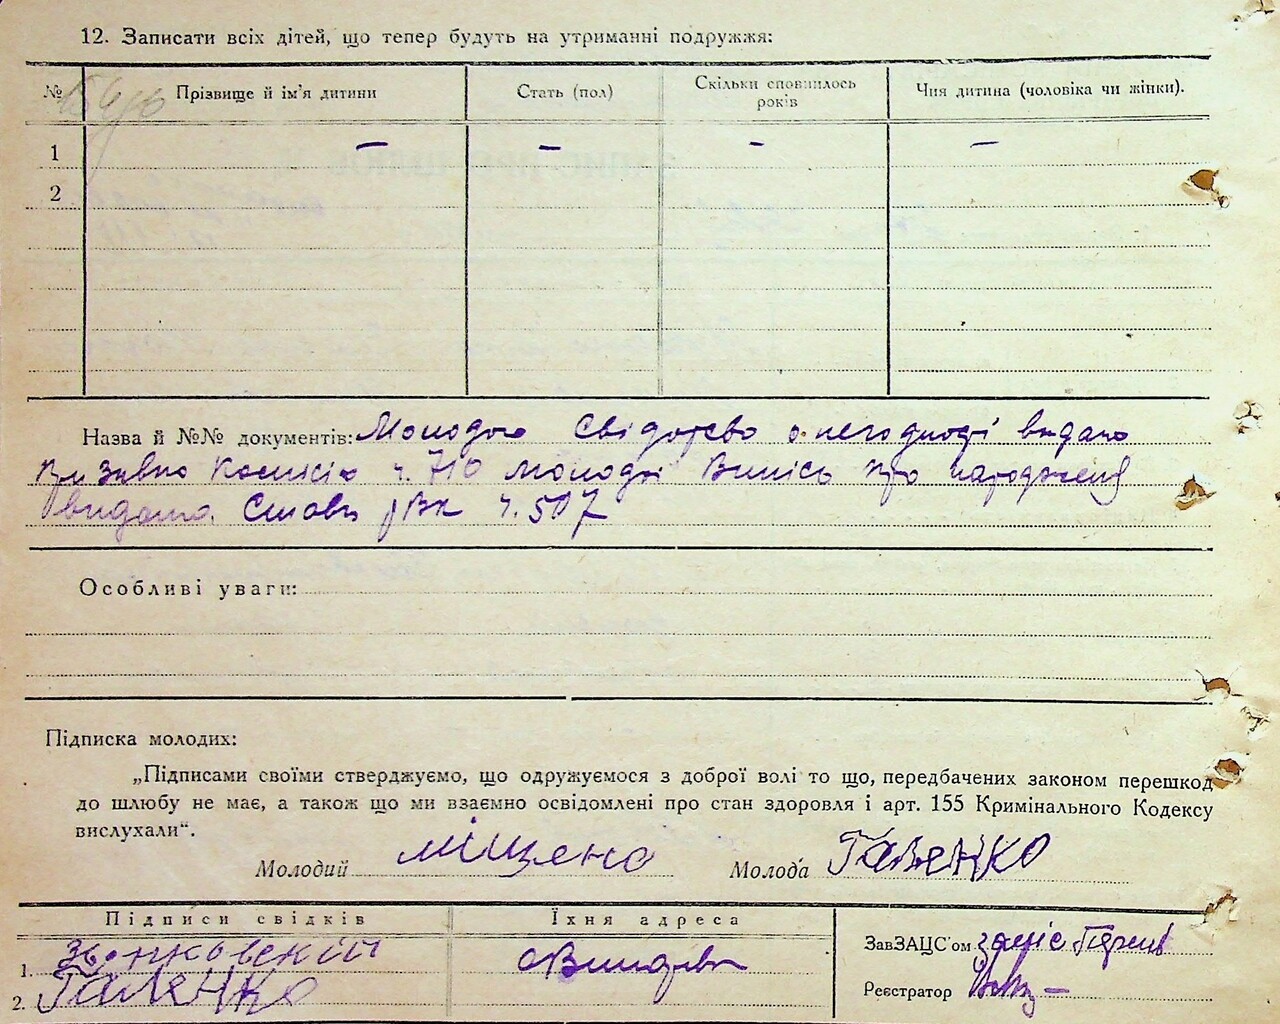 12. Записати всіх дітей, що тепер будуть на утриманні подружжя:
№ Прізвище й ім'я дитини Стать (пол) Скільки сповнилось років Чия дитина (чоловіка чи жінки).
1 — — — —
2
Назва й №№ документів: Молодого Свідотсво о негодності видано
Призивно Комісією ч. 710 молодої Випісь про народженя
видана ч. 507
Особливі уваги:
Підписка молодих:
„Підписами своїми стверджуємо, що одружуємося з доброї волі то що, передбачених законом перешкод
до шлюбу не має, а також що ми взаємно освідомлені про стан здоровля і арт. 155 Кримінального Кодексу
вислухали“.
Молодий Міщенко Молода Галенко
Підписи свідків Їхня адреса
ЗавЗАЦС'ом
1.
2. Галенко
Реєстратор